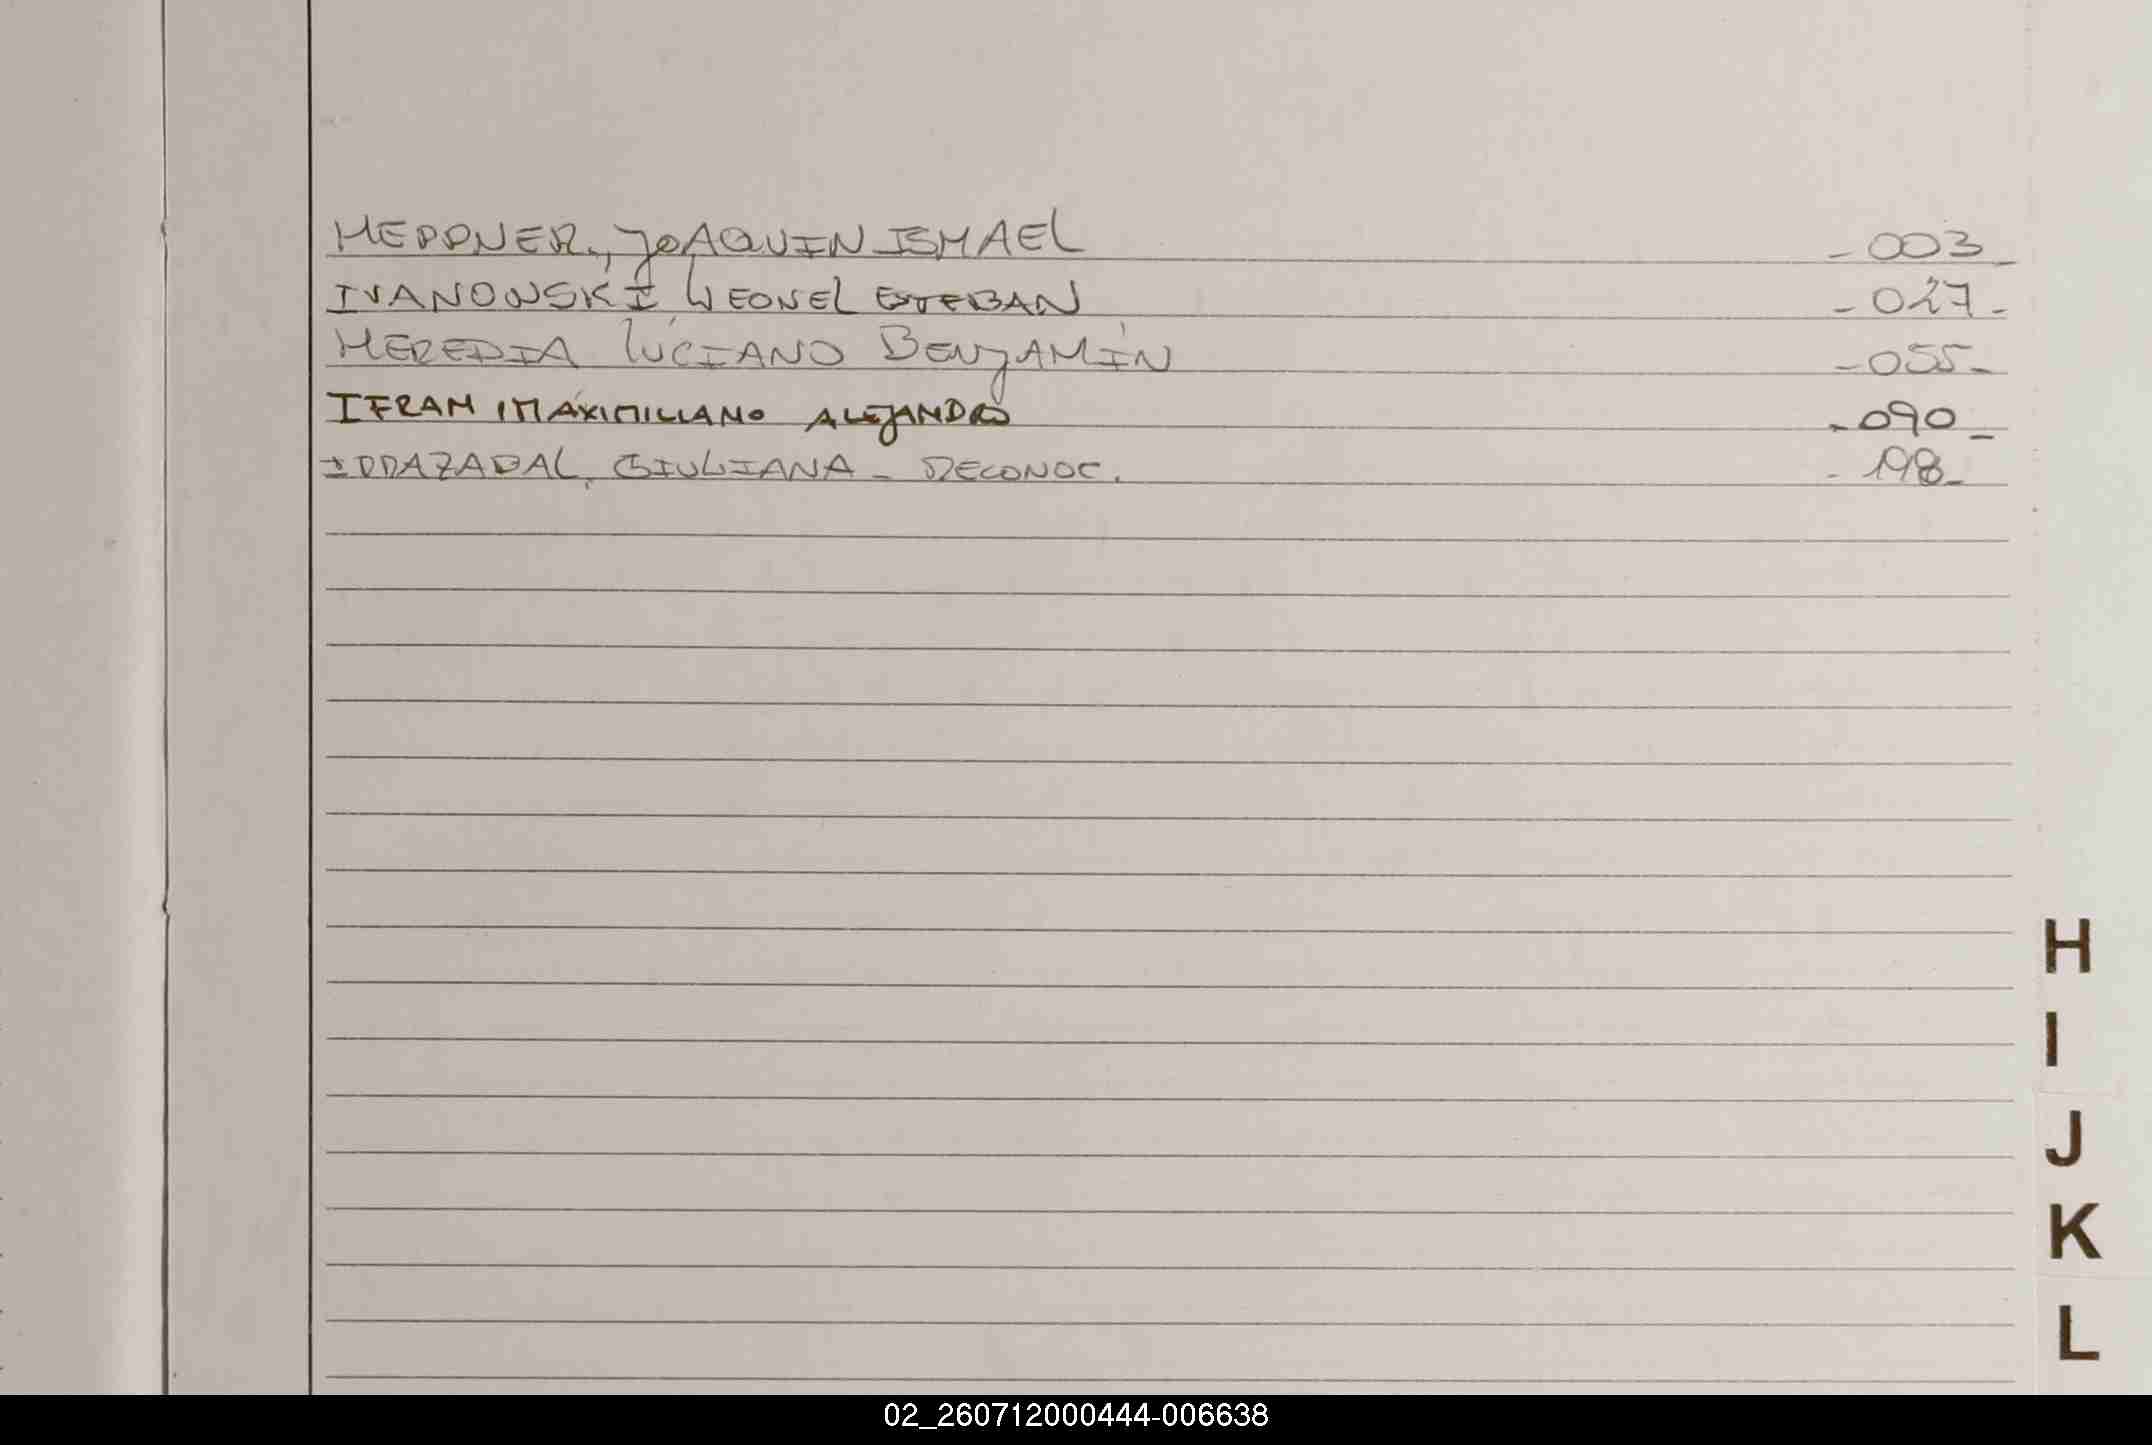 HEPPNER, JOAQUIN ISMAEL - 003 -
IVANOWSKI LEONEL ESTEBAN - 027 -
HEREDIA LUCIANO BENJAMÍN - 055 -
IFRAM MAXIMILIANO ALEJANDRO - 090 -
IRRAZABAL, GIULIANA - RECONOC. - 198 -
H
I
J
K
L
02_260712000444-006638